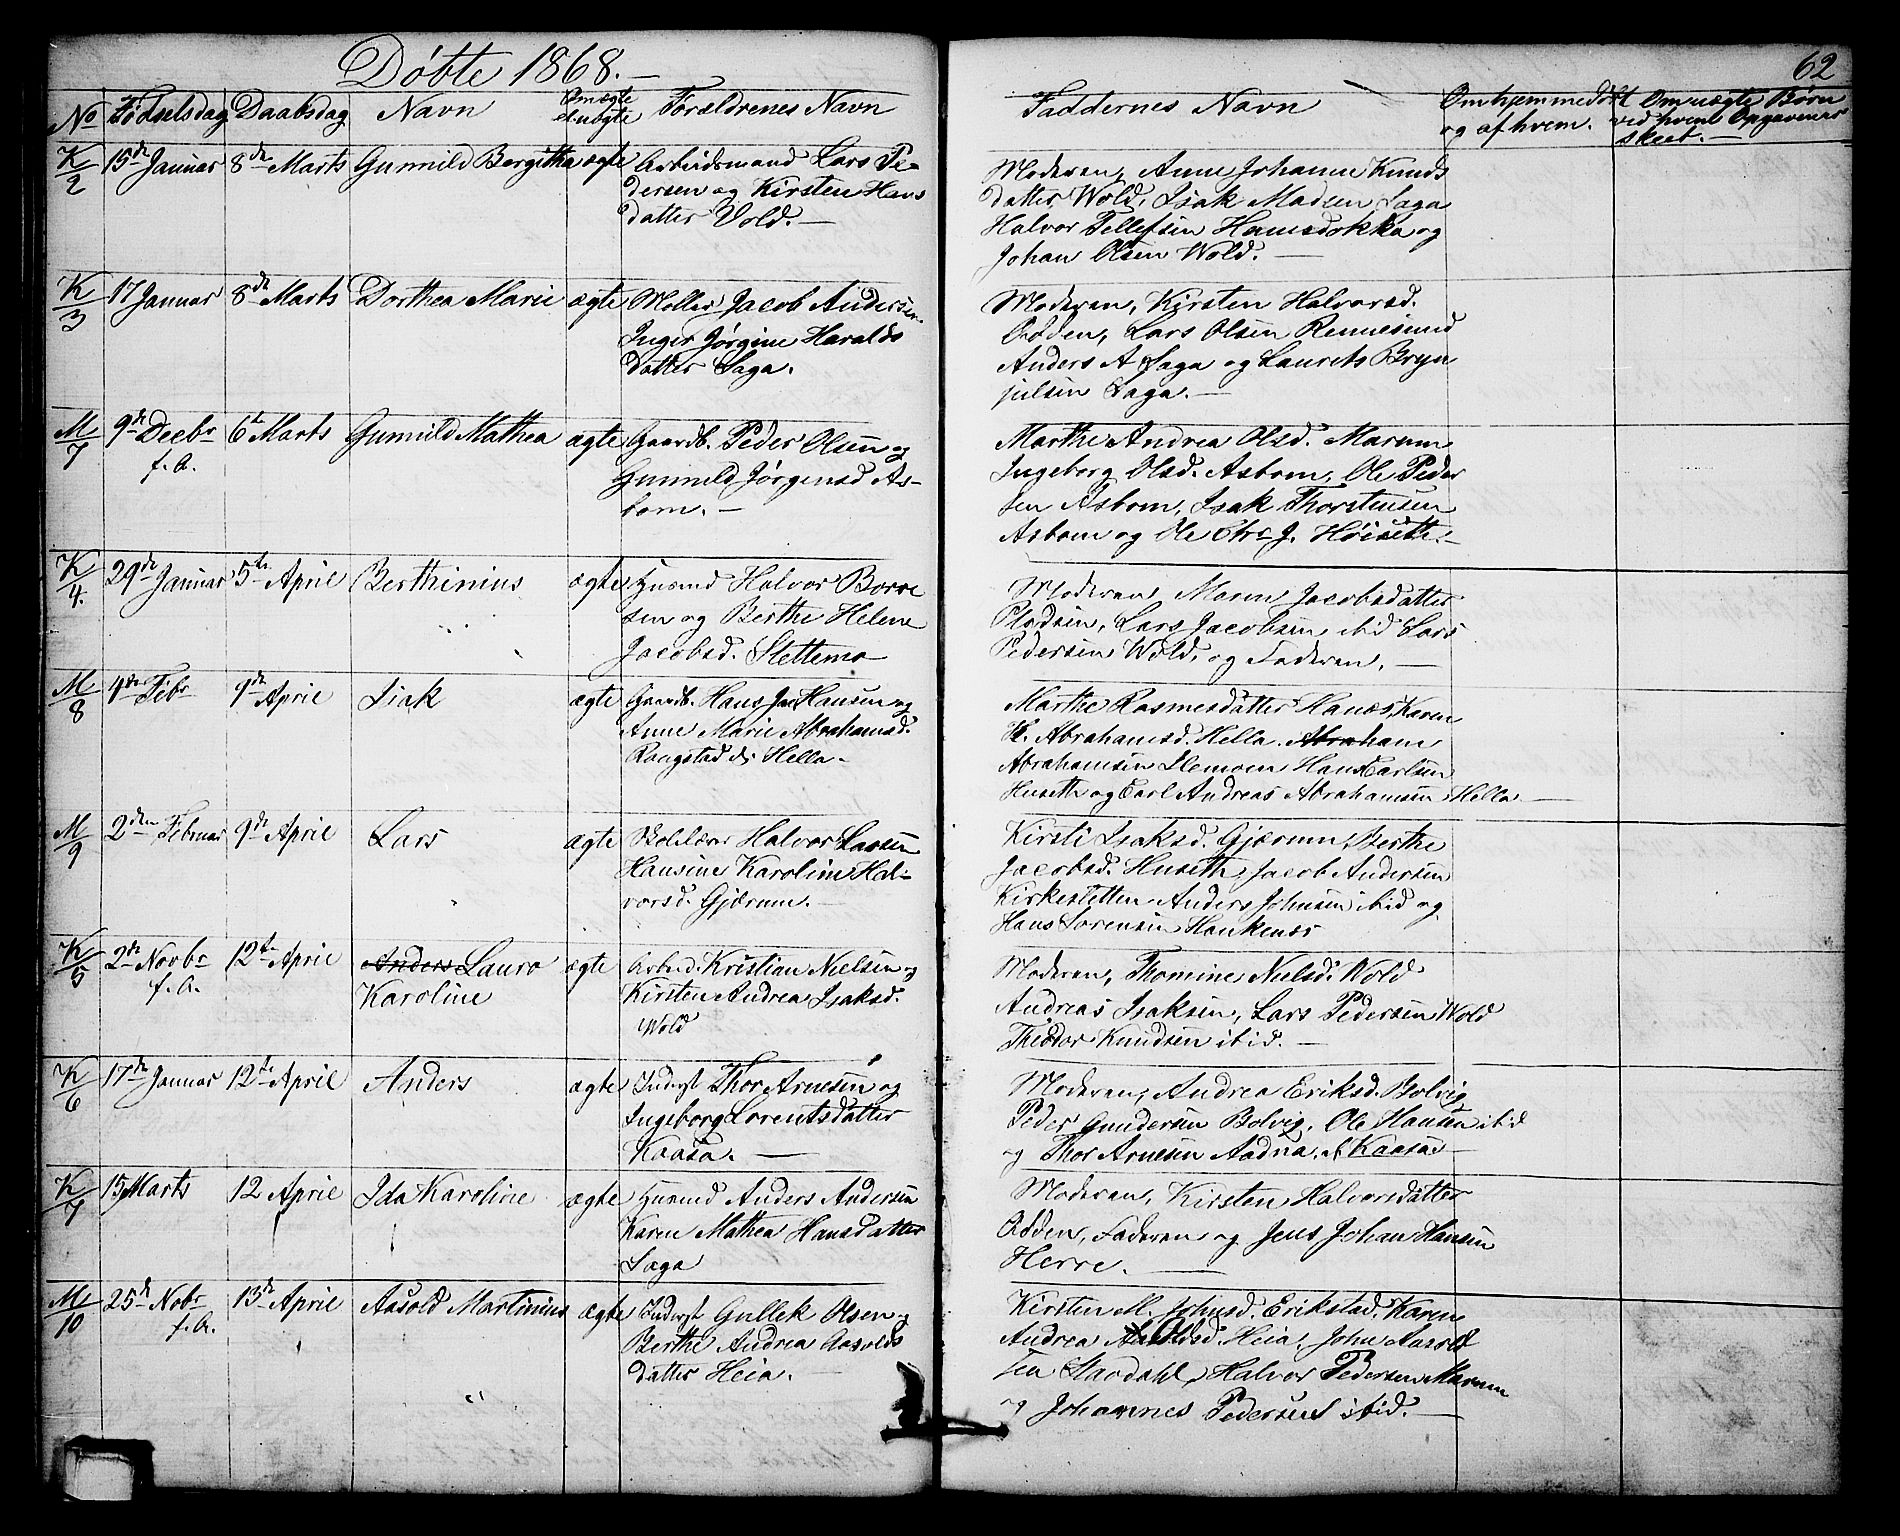 Døbte 1868.—
62
No Fødselsdag Daabsdag Navn Om ægte el uægte Forældrenes Navn Faddernes Navn Om hjemmedøbt og af hvem. Om uægte Børn ved hvem Opgavenes skeet.—
K/2 15de Januar 8de Marts Gunnild Bergitha ægte Arbeidsmand Lars Pe-
dersen og Kirsten Hans
datter Vold.—
Moderen, Anne Johanne Knuds
datter Wold, Isak Madsen Saga
Halvor Tellefsen Hamsdokka og
Johan Olsen Wold.—
K/3 17 Januar 8de Marts Dorthea Marie ægte Møller Jacob Andersen
Inger Jørgine Haralds
datter Saga.
Moderen, Kirsten Halvorsd.
Odden, Lars Olsen Rennesund
Anders A Saga og Laurits Bryn
julsen Saga.—
M/7 9de Decbr f.A. 6te Marts Gunnild Mathea ægte Gaardb. Peder Olsen og
Gunnild Jørgensd As-
bom.—
Marthe Andrea Olsd. Marum
Ingeborg Olsd. Asbom, Ole Peder
sen Asbom, Isak Thorstensen
Asbom og Ole Chr. J. Høiseth.—
K/4. 29de Januar 5te April Berthinius ægte Husmd Halvor Borre
sen og Berthe Helene
Jacobsd. Slettemo
Moderen, Maren Jacobsdatter
Pladsen, Lars Jacobsen ibid Lars
Pedersen Wold, og Faderen.—
M/8 4de Febr 9de April Isak ægte Gaardb. Hans Jac Hansen og
Anne Marie Abrahamsd.
Rougstad ds Hella.
Marthe Rasmesdatter Hanæs, Karen
K. Abrahamsd. Hella. Abraham
Abrahamsen Ilemoen Hans Carlsen
Huseth og Carl Andreas Abrahamsen Hella—
M/9 2den Februar 9de April Lars ægte Skolelærer Halvor Larsen
Hansine Karoline Hal-
vorsd. Gjærum.—
Kirsti Isaksd. Gjærum, Berthe
Jacobsd. Huseth, Jacob Andersen
Kirkesletten Anders Johnsen ibid og
Hans Sørensen Haukenæs
K/5 2de Novbr f.A. 12te April Anders Laura
Karoline ægte Arbmd. Kristian Nielsen og
Kirsten Andrea Isaksd.
Wold
Moderen, Thomine Nielsd. Wold
Andreas Isaksen, Lars Pedersen Wold
Theodor Knudsen ibid.—
K/6 17de Januar 12te April Anders ægte Inderst Thor Arnesen og
Ingeborg Lorentsdatter
Kaasa.—
Moderen, Andrea Eriksd. Bolvig,
Peder Gundersen Bolvig, Ole Hansen ibid
og Thor Arnesen Aadna, Kaasa—
K/7 15 Marts 12 April Ida Karoline ægte Husmd Anders Andersen
Karen Mathea Hansdatter
Saga
Moderen, Kirsten Halvorsdatter
Odden, Faderen og Jens Johan Hansen
Herre.—
M/10 25de Nobr f.A. 13de April Aasold Martinius ægte Inderst Gullek Olsen og
Berthe Andrea Aasolds
datter Heia.—
Kirsten M. Johnsd. Erikstad. Karen
Andrea Aasoldsd. Heia, John Aasold
sen Stavdahl, Halvor Pedersen Marum
og Johannes Pedersen ibid.—